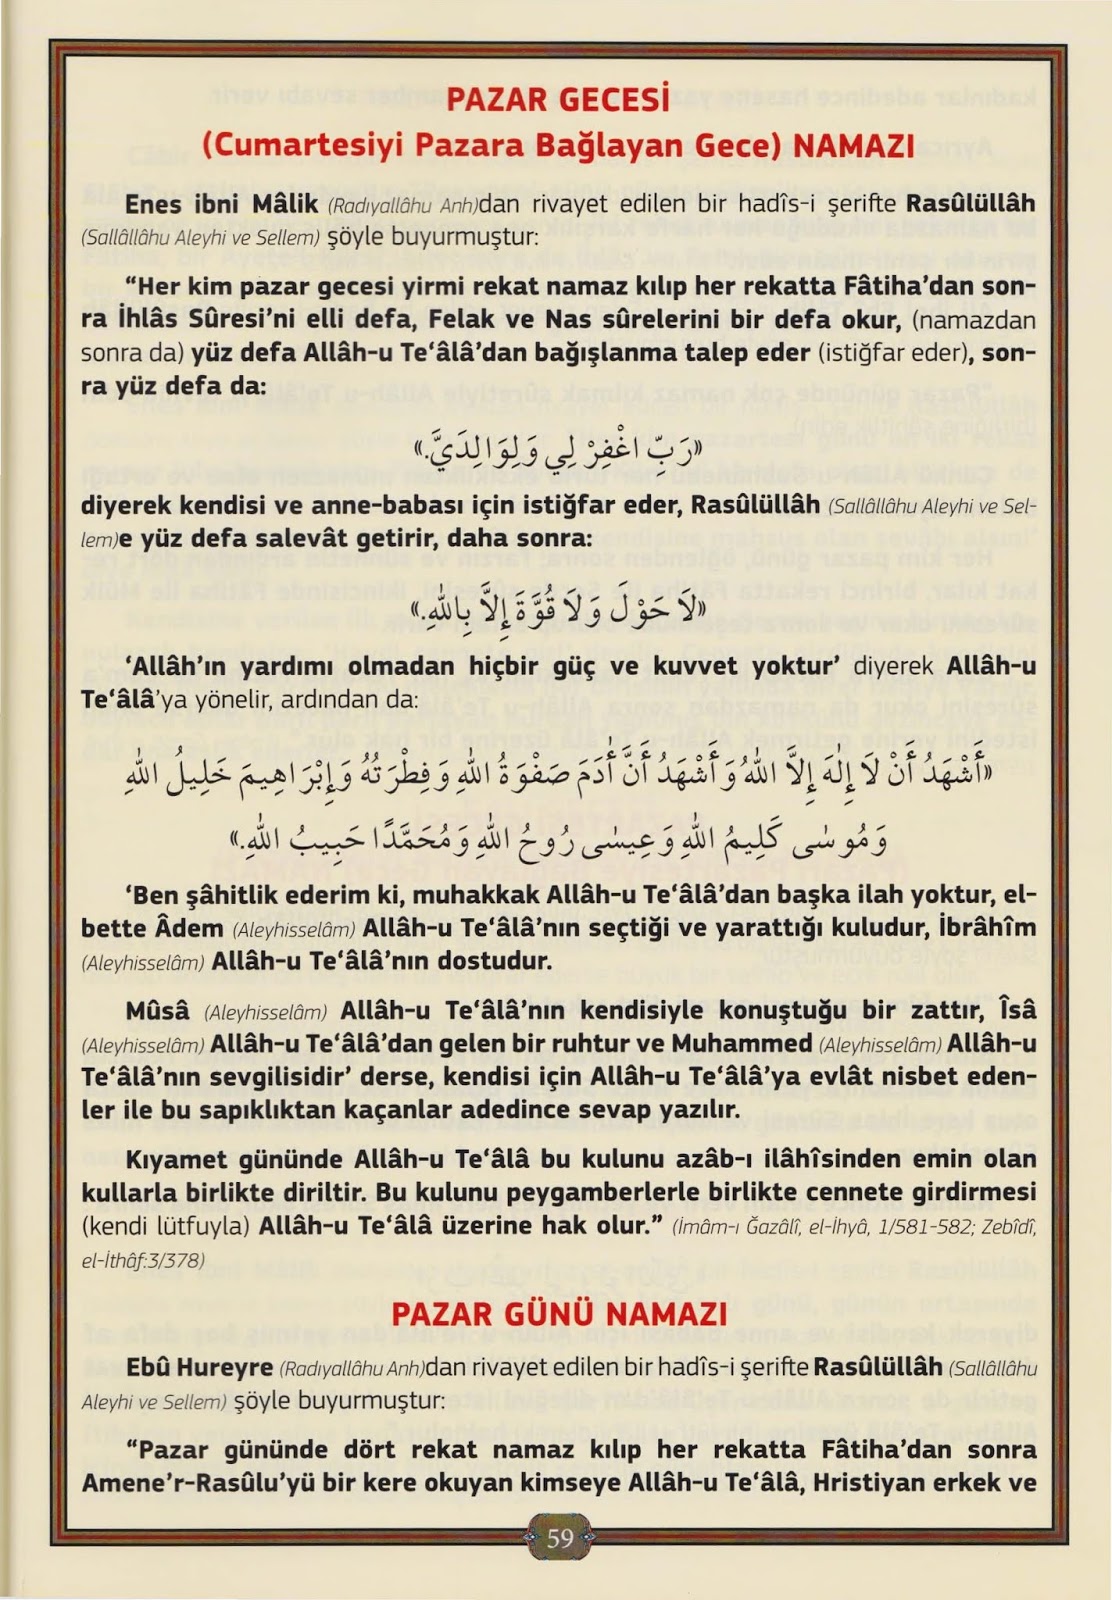 PAZAR GECESİ
(Cumartesiyi Pazara Bağlayan Gece) NAMAZI
Enes ibni Mâlik (Radıyallâhu Anh)dan rivayet edilen bir hadîs-i şerifte Rasûlüllâh
(Sallâllâhu Aleyhi ve Sellem) şöyle buyurmuştur:
“Her kim pazar gecesi yirmi rekat namaz kılıp her rekatta Fâtiha’dan son-
ra İhlâs Sûresi’ni elli defa, Felak ve Nas sûrelerini bir defa okur, (namazdan
sonra da) yüz defa Allâh-u Te‘âlâ’dan bağışlanma talep eder (istiğfar eder), son-
ra yüz defa da:
«رَبِّ اغْفِرْ لِي وَلِوَالِدَيَّ.»
diyerek kendisi ve anne-babası için istiğfar eder, Rasûlüllâh (Sallâllâhu Aleyhi ve Sel-
lem)e yüz defa salevât getirir, daha sonra:
«لَا حَوْلَ وَلَا قُوَّةَ إِلَّا بِاللّٰهِ.»
‘Allâh’ın yardımı olmadan hiçbir güç ve kuvvet yoktur’ diyerek Allâh-u
Te‘âlâ’ya yönelir, ardından da:
«أَشْهَدُ أَنْ لَا إِلٰهَ إِلَّا اللّٰهُ وَأَشْهَدُ أَنَّ أٰدَمَ صَفْوَةُ اللّٰهِ وَفِطْرَتُهُ وَإِبْرَاهِيمَ خَلِيلُ اللّٰهِ
وَمُوسٰى كَلِيمُ اللّٰهِ وَعِيسٰى رُوحُ اللّٰهِ وَمُحَمَّدًا حَبِيبُ اللّٰهِ.»
‘Ben şâhitlik ederim ki, muhakkak Allâh-u Te‘âlâ’dan başka ilah yoktur, el-
bette Âdem (Aleyhisselâm) Allâh-u Te‘âlâ’nın seçtiği ve yarattığı kuludur, İbrâhîm
(Aleyhisselâm) Allâh-u Te‘âlâ’nın dostudur.
Mûsâ (Aleyhisselâm) Allâh-u Te‘âlâ’nın kendisiyle konuştuğu bir zattır, Îsâ
(Aleyhisselâm) Allâh-u Te‘âlâ’dan gelen bir ruhtur ve Muhammed (Aleyhisselâm) Allâh-u
Te‘âlâ’nın sevgilisidir’ derse, kendisi için Allâh-u Te‘âlâ’ya evlât nisbet eden-
ler ile bu sapıklıktan kaçanlar adedince sevap yazılır.
Kıyamet gününde Allâh-u Te‘âlâ bu kulunu azâb-ı ilâhîsinden emin olan
kullarla birlikte diriltir. Bu kulunu peygamberlerle birlikte cennete girdirmesi
(kendi lütfuyla) Allâh-u Te‘âlâ üzerine hak olur.” (İmâm-ı Ğazâlî, el-İhyâ, 1/581-582; Zebîdî,
el-İthâf:3/378)
PAZAR GÜNÜ NAMAZI
Ebû Hureyre (Radıyallâhu Anh)dan rivayet edilen bir hadîs-i şerifte Rasûlüllâh (Sallâllâhu
Aleyhi ve Sellem) şöyle buyurmuştur:
“Pazar gününde dört rekat namaz kılıp her rekatta Fâtiha’dan sonra
Amene’r-Rasûlu’yü bir kere okuyan kimseye Allâh-u Te‘âlâ, Hristiyan erkek ve
59